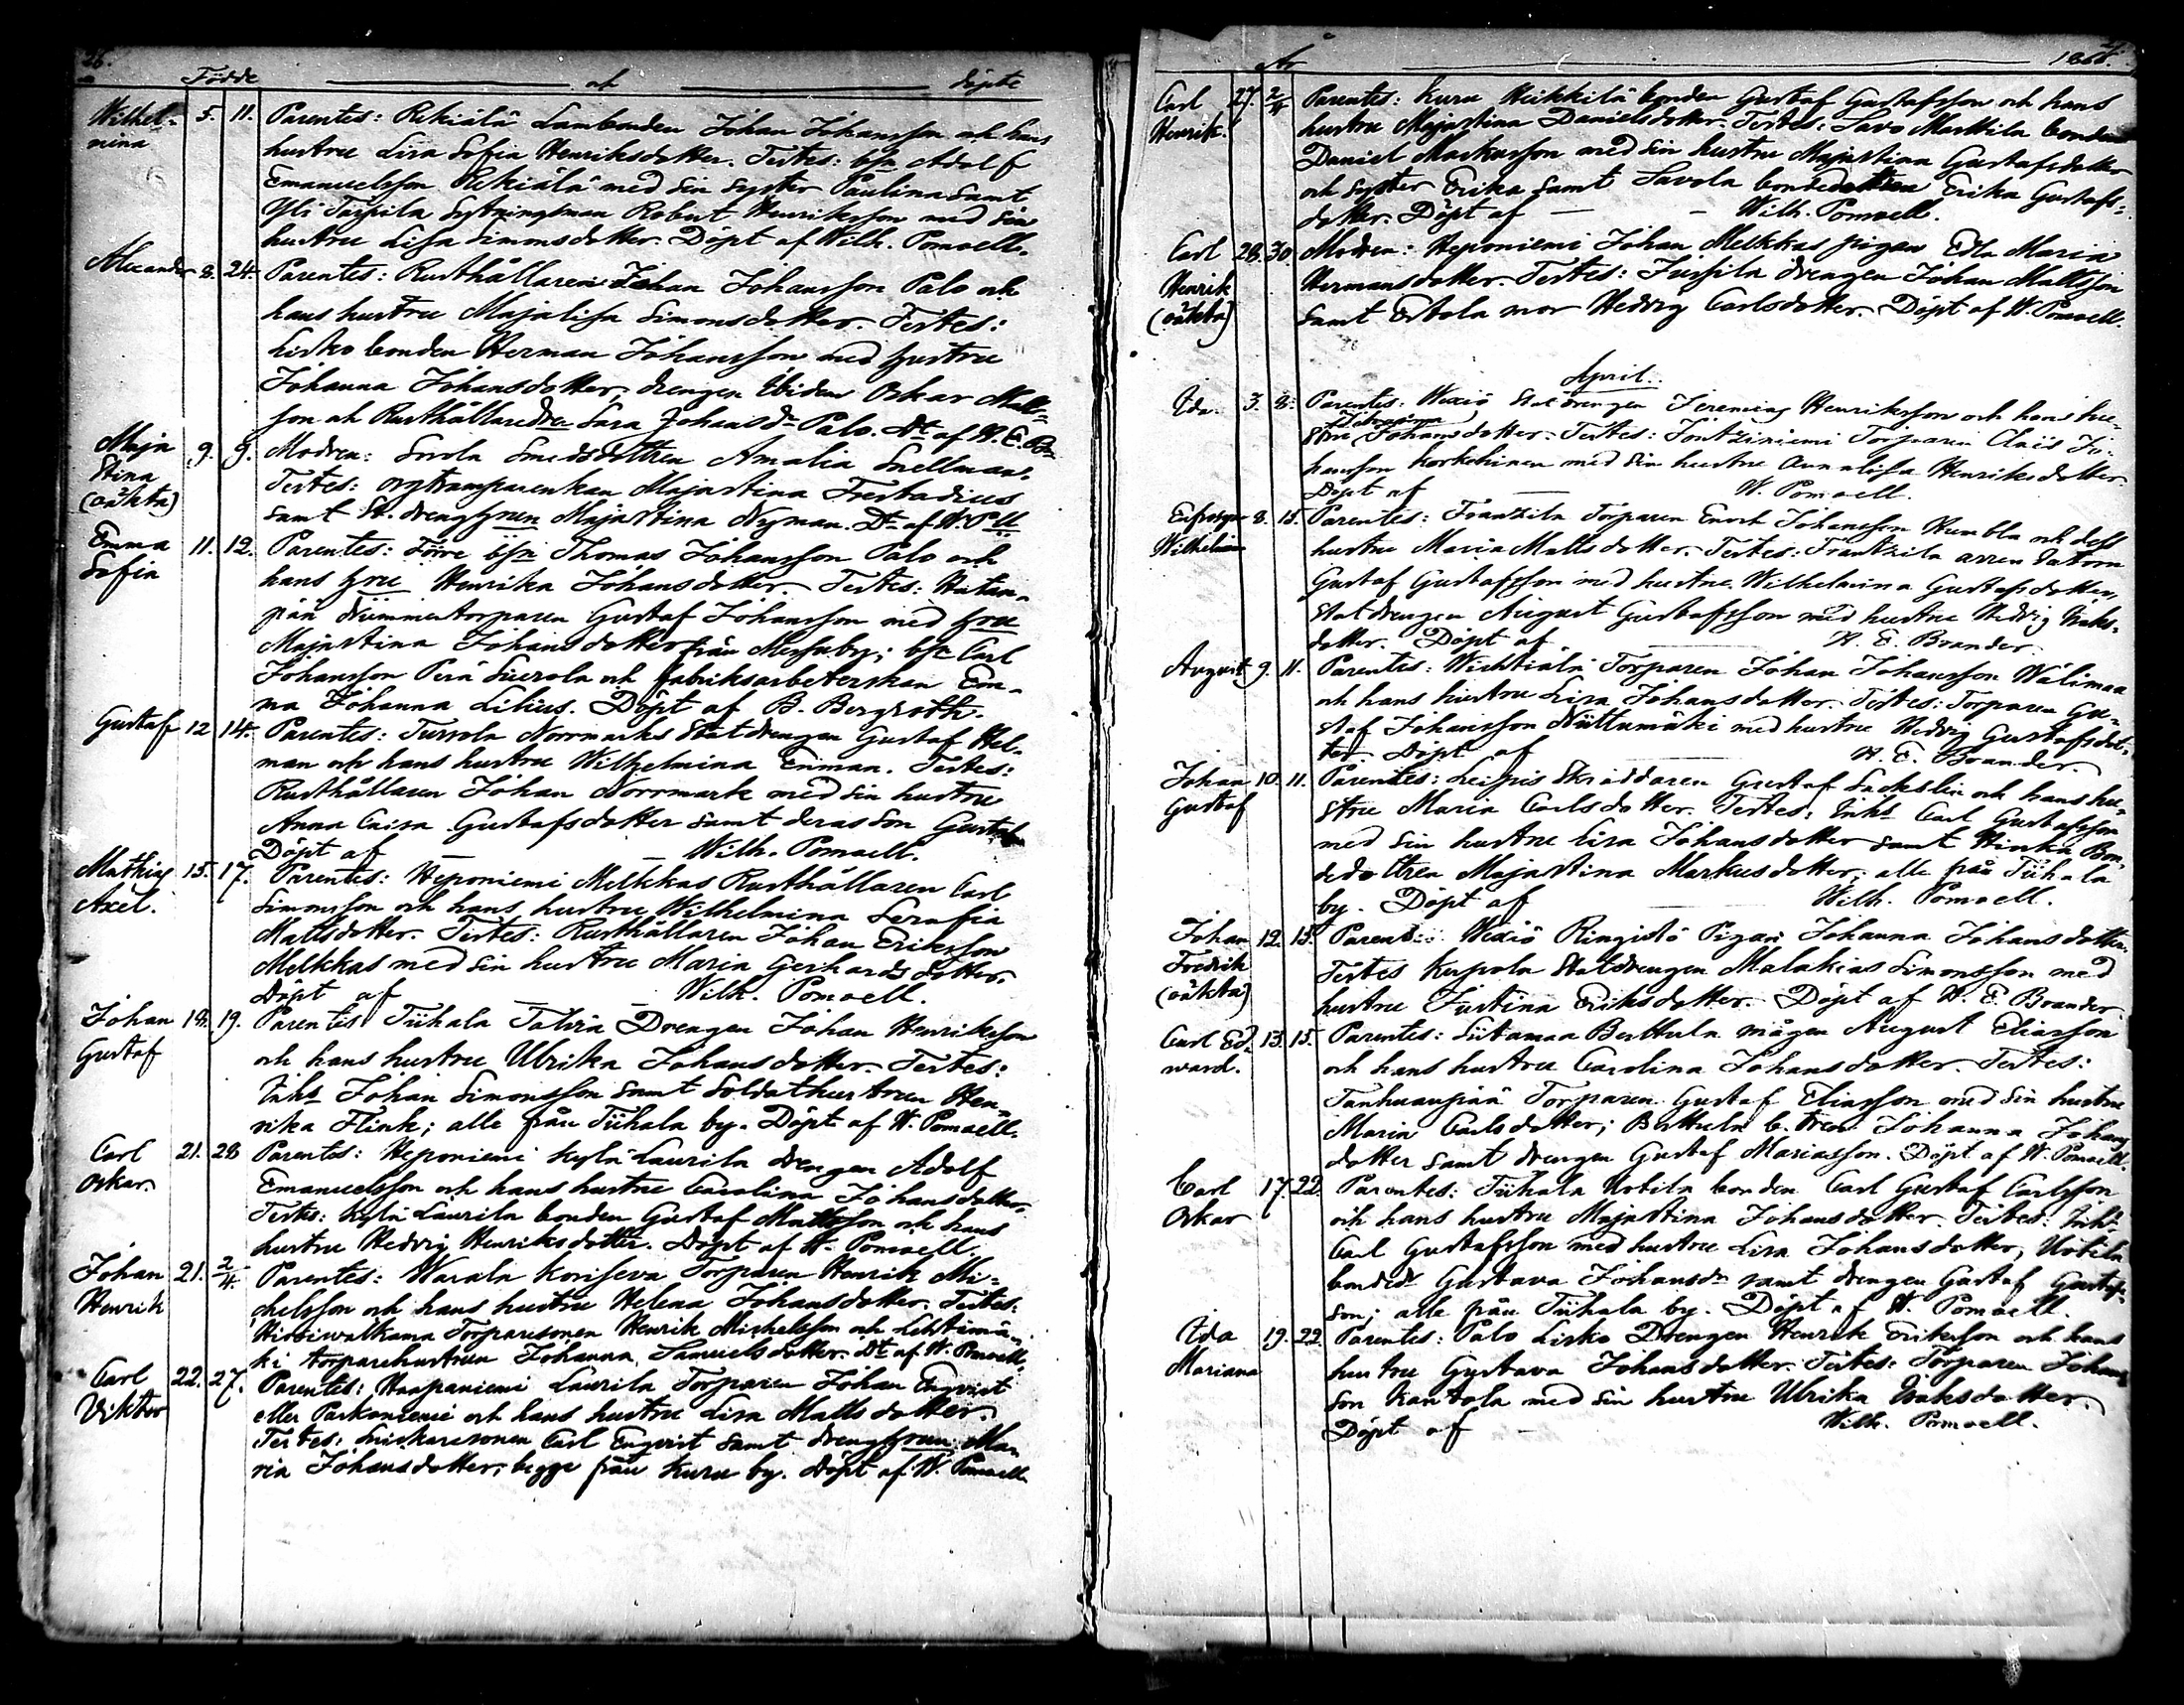 26.
Födde af döpte
Wilhel= 5. 11. Parentes: Rekiälä Lambonden Johan Johansson och hans
nina hustru Lisa Sofia Henriksdotter. Testes: bsn Adolf
Emanuelsson Rekiälä med sin syster Paulina samt
Yli Tarpila Sytningsman Robert Henriksson med sin
hustru Lisa Simonsdotter. Döpt af Wilh. Pomoell.
Alexander 8. 24. Parentes: Rusthållaren Johan Johansson Palo och
hans hustru Majalisa Simonsdotter. Testes:
Lisko bonden Herman Johansson med hustru
Johanna Johansdotter, drengen Oskar Matts=
son och Rusthållaredrn Sara Johansdr Palo. Dt af H. E. Br
Maja 9. 9. Modren: Smedsdottren Amalia Snellman.
Stina Testes: Majastina Frestadius
(oäkta) samt St. drenghrun Majastina Nyman. Dt af W. Pll
Emma 11. 12. Parentes: Förre bsn Thomas Johansson Palo och
Sofia hans hru Henrika Johansdotter. Testes: Hatan=
pää Nummentorparen Gustaf Johansson med hru
Majastina Johansdotter från Messuby; bsn Carl
Johansson Perä Suerola och fabriksarbeterskan Em=
ma Johanna Lilius. Döpt af B. Bergroth.
Gustaf 12 14. Parentes: Turrola Norrmarks Statdrengen Gustaf Hel=
man och hans hustru Wilhelmina Enman. Testes:
Rusthållaren Johan Norrmark med sin hustru
Anna Caisa Gustafsdotter samt deras son Gustaf
Döpt af Wilh. Pomoell.
Mathias 15. 17. Parentes: Heponiemi Melkkas Rusthållaren Carl
Axel. Simonsson och hans hustru Wilhelmina Serafia
Mattsdotter. Testes: Rusthållaren Johan Eriksson
Melkkas med sin hustru Maria Gerhardsdotter.
Döpt af Wilh. Pomoell.
Johan 18. 19. Parentes Tiihala Talvia Drengen Johan Henriksson
Gustaf och hans hustru Ulrika Johansdotter. Testes:
Inhs Johan Simonsson samt Soldathustrun Hen=
rika Flink; alle från Tiihala by. Döpt af W. Pomoell.
Carl 21. 28 Parentes: Heponiemi Kylä Laurila drengen Adolf
Oskar. Emanuelsson och hans hustru Carolina Johansdotter.
Testes: Kylä Laurila bonden Gustaf Mattsson och hans
hustru Hedvig Henriksdotter. Döpt af W. Pomoell.
Johan 21. 2/4. Parentes: Warala Koriseva Torparen Henrik Mi=
Henrik chelsson och hans hustru Helena Johansdotter. Testes:
Torparesonen Henrik Michelsson och Lehtimä=
ki torparehustrun Johanna Samuelsdotter. Dt af W. Pomoell.
Carl 22. 27. Parentes: Haapaniemi Laurila Torparen Johan Enqvist
Viktor eller Paskoniemi och hans hustru Lisa Mattsdotter.
Testes: Snickaresonen Carl Enqvist samt drenghrun Ma=
ria Johansdotter; begge från Kuru by. Döpt af W. Pomoell
År 1866.
Carl 27. 2/4 Parentes: Kuru Heikkilä bonden Gustaf Gustafsson och hans
Henrik. hustru Majastina Danielsdotter. Testes: Savo Marttila bonden
Daniel Markusson med sin hustru Majastina Gustafsdotter
och syster Erika samt Savola bondedottren Erika Gustafs=
dotter. Döpt af Wilh. Pomoell.
Carl 28. 30. Modren: Heponiemi Johan Melkkas pigan Edla Maria
Henrik Hermansdotter. Testes: Jussila drengen Johan Mattsson
(oäkta) samt Ertola mor Hedvig Carlsdotter. Döpt af W. Pomoell.
April.
Ida 3. 8. Parentes: Wexiö Statdrengen Jeremias Henriksson och hans hu=
stru Johansdotter. Testes: Jöntziniemi Torparen Claës Jo=
hansson Korkehinen med sin hustru Annalisa Henriksdotter.
Döpt af W. Pomoell.
Eufrosyne 8. 15. Parentes: Frantzila Torparen Enoch Johansson Humbla och dess
Wilhelmina hustru Maria Mattsdotter. Testes: Frantzila arren datorn
Gustaf Gustafsson med hustru Wilhelmina Gustafsdotter,
Statdrengen August Gustafsson med hustru Hedvig Isaks=
dotter. Döpt af H. E. Brander.
August 9. 11. Parentes: Wichtiälä Torparen Johan Johansson Wälimaa
och hans hustru Lisa Johansdotter. Testes: Torparen Gu=
staf Johansson Niittumäki med hustru Hedvig Gustafsdot=
ter. Döpt af H. E. Brander.
Johan 10. 11. Parentes: Leipis Skräddaren Gustaf Sackelin och hans hu=
Gustaf stru Maria Carlsdotter. Testes: Inhs Carl Gustafsson
med sin hustru Lisa Johansdotter samt Hinkka Bon=
dedottren Majastina Markusdotter; alle från Tiihala
by. Döpt af Wilh. Pomoell.
Johan 12. 15. Parentes: Wexiö Ringistö Pigan Johanna Johansdotter.
Fredrik Testes Kupola Statdrengen Malakias Simonsson med
(oäkta) hustru Justina Eriksdotter. Döpt af H. E. Brander
Carl Ed= 13. 15. Parentes: Liitamaa Berttula mågen August Eliasson
ward. och hans hustru Carolina Johansdotter. Testes:
Tanhuanpää Torparen Gustaf Eliasson med sin hustru
Maria Carlsdotter; Berttula b. tren Johanna Johans
dotter samt drengen Gustaf Mariasson. Döpt af W. Pomoell.
Carl 17. 22. Parentes: Tiihala Uotila bonden Carl Gustaf Carlsson
Oskar och hans hustru Majastina Johansdotter. Testes: Inhs
Carl Gustafsson med hustru Lisa Johansdotter, Uotila
bondedr Gustava Johansdr samt drengen Gustaf Gustafs=
son; alle från Tiihala by. Döpt af W. Pomoell.
Ida 19. 22. Parentes: Palo Lisko Drengen Henrik Eriksson och hans
Mariana hustru Gustava Johansdotter. Testes: Torparen Johans
son Kantola med sin hustru Ulrika Isaksdotter.
Döpt af Wilh. Pomoell.